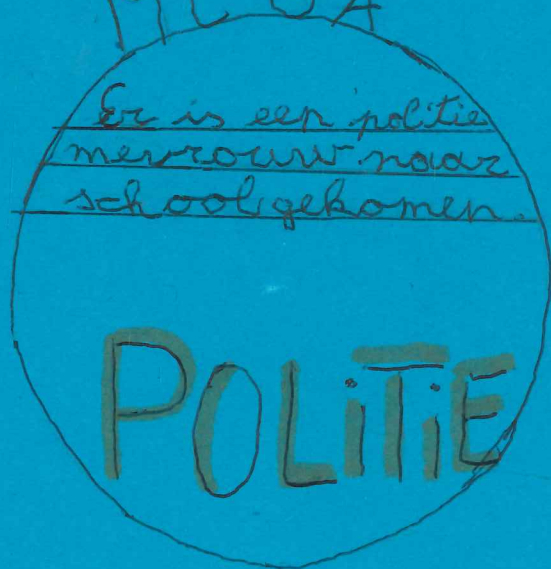 Er is een politie
mevrouw naar
school gekomen.
POLiTiE